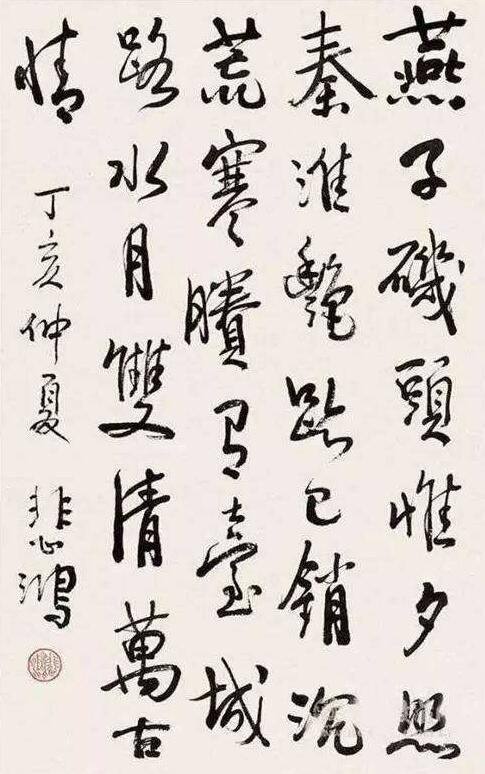 燕子磯頭惟夕照
秦淮艷跡已銷沉
荒寒賸有臺城
路水月雙清萬古
情
丁亥仲夏 悲鴻